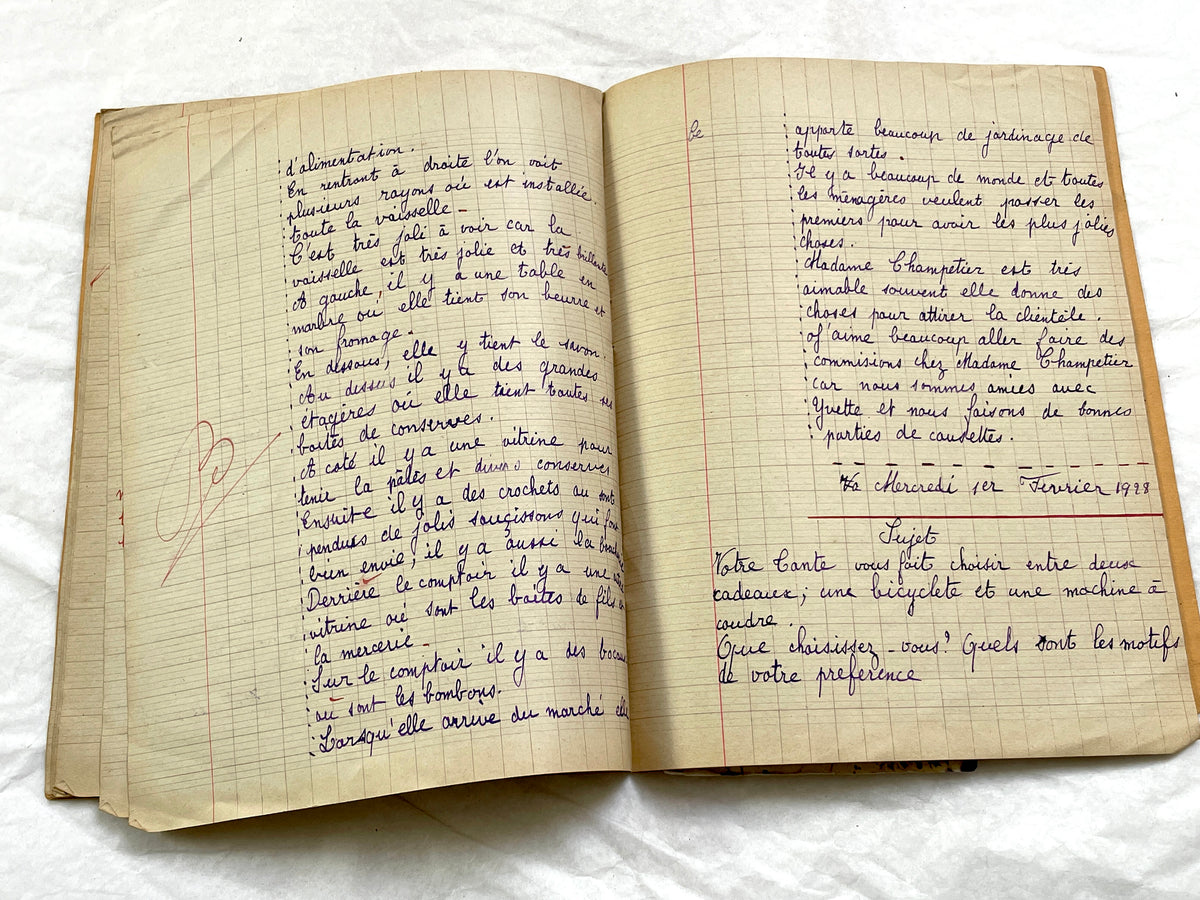 d'alimentation.
En rentrant à droite l'on voit
plusieurs rayons où est installée
toute la vaisselle.
C'est très joli à voir car la
vaisselle est très jolie et très brillante
A gauche, il y a une table en
marbre où elle tient son beurre et
son fromage.
En dessous, elle y tient le savon.
Au dessus il y a des grandes
étagères où elle tient toutes ses
boîtes de conserves.
A coté il y a une vitrine pour
tenir la pâtés et divers conserves
Ensuite il y a des crochets ou sont
pendus de jolis sauçissons qui font
bien envie, il y a aussi la
Derrière le comptoir il y a une
vitrine où sont les boîtes de fils
la mercerie
Sur le comptoir il y a des bocaux
ou sont les bombons.
Lorsqu'elle arrive du marché elle
B
ce
apporte beaucoup de jardinage de
toutes sortes.
Il y a beaucoup de monde et toutes
les ménagères veulent passer les
premiers pour avoir les plus jolies
choses.
Madame Champetier est très
aimable souvent elle donne des
choses pour attirer la clientèle.
J'aime beaucoup aller faire des
commisions chez Madame Champetier
car nous sommes amies avec
Yvette et nous faisons de bonnes
parties de causettes.
Mercredi 1er Fevrier 1928
Sujet
Votre Tante vous fait choisir entre deux
cadeaux; une bicyclete et une machine à
coudre.
Que choisissez-vous? Quels sont les motifs
de votre preference